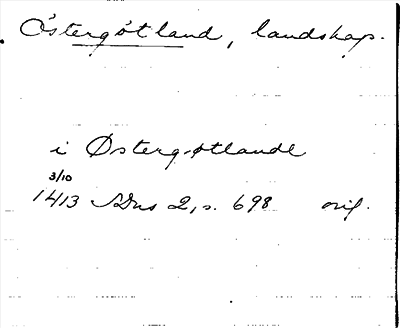 Östergötland, landskap.
i Østergøtlande
3/10
1413 SDns 2, s. 698 orig.